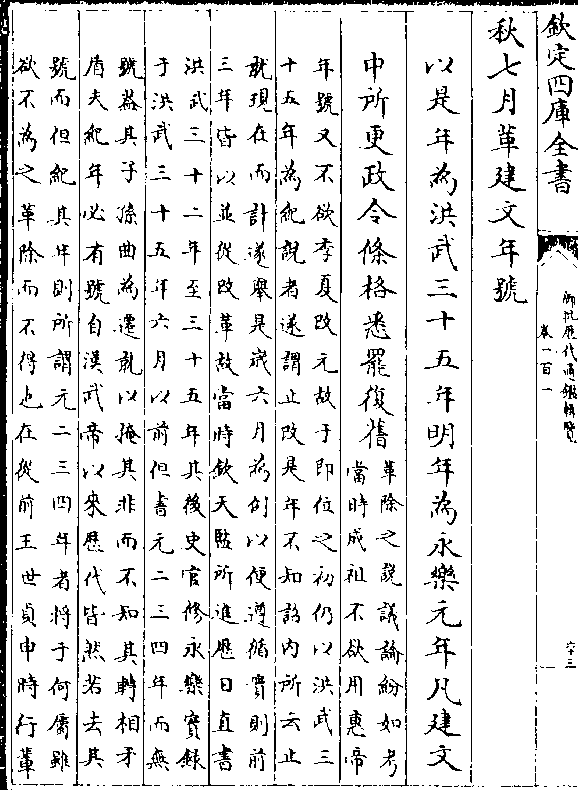 欽定四庫全書
御批歷代通鑑輯覽
卷一百一
六十三
秋七月革建文年號
以是年為洪武三十五年明年為永樂元年凡建文
中所更政令條格悉罷復舊
革除之說議論紛如考
當時成祖不欲用惠帝
年號又不欲季夏改元故于即位之初仍以洪武三
十五年為紀說者遂謂止改是年不知詔內所云止
就現在而計遂舉是歲六月為例以便遵循實則前
三年皆以並從改革故當時欽天監所進歷日直書
洪武三十二年至三十五年其後史官修永樂實錄
于洪武三十五年六月以前但書元二三四年而無
號蓋其子孫曲為遷就以掩其非而不知其轉相矛
盾夫紀年必有號自漢武帝以來歷代皆然若去其
號而但紀其年則所謂元二三四年者將于何屬雖
欲不為之革除而不得也在從前王世貞申時行輩